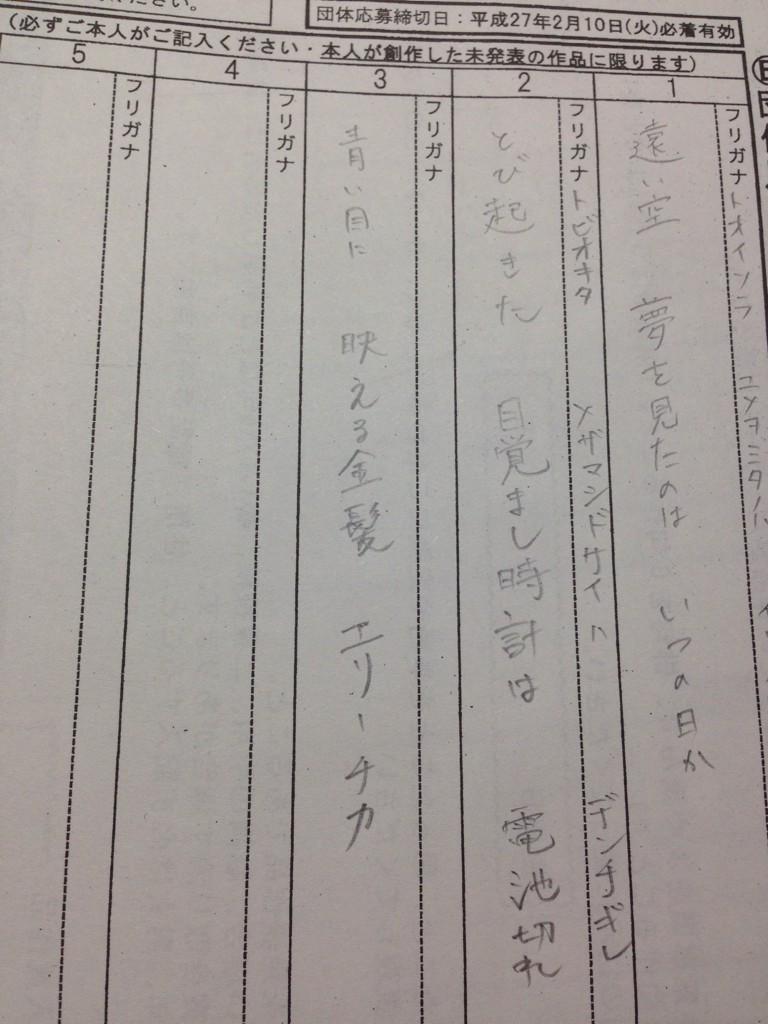 ださい。
団体応募締切日：平成27年2月10日(火)必着有効
(必ずご本人がご記入ください・本人が創作した未発表の作品に限ります)
1
フリガナ トオイソラ ユメヲミタノハ
遠い空 夢を見たのは いつの日か
2
フリガナ トビオキタ メザマシドケイハ デンチギレ
とび起きた 目覚まし時計は 電池切れ
3
フリガナ
青い目に 映える金髪 エリーチカ
4
フリガナ
5
フリガナ